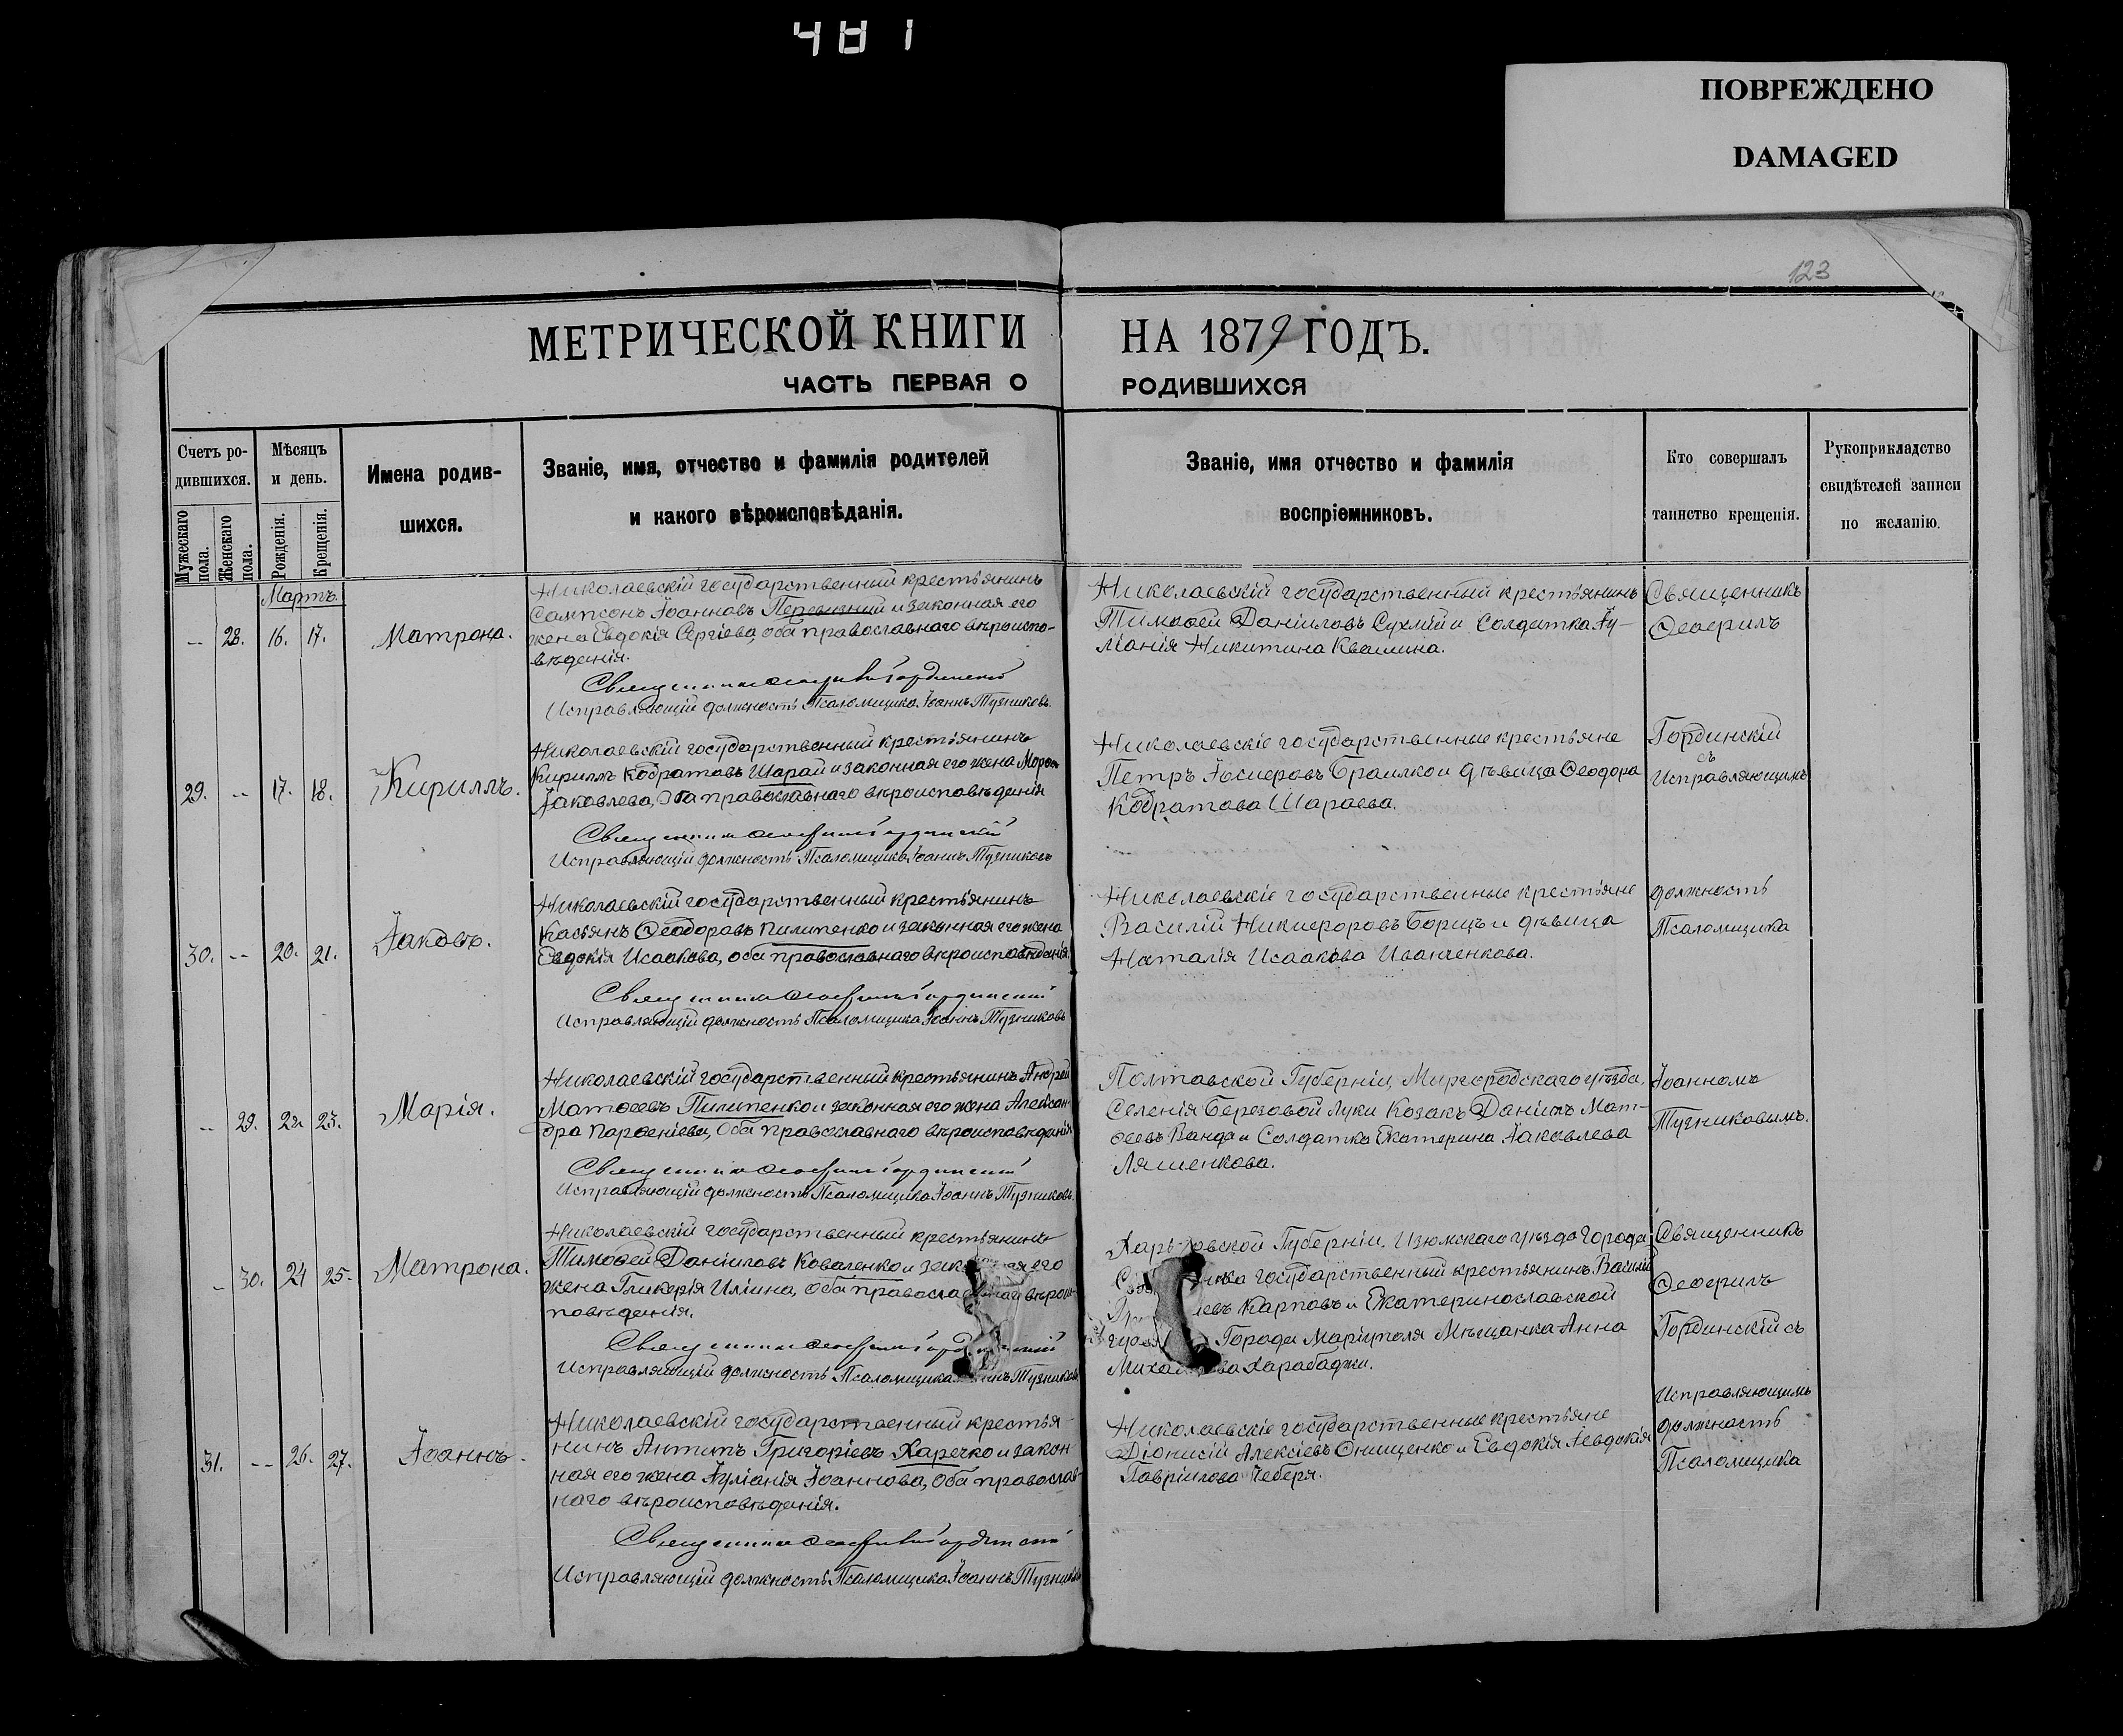 481
ПОВРЕЖДЕНО
DAMAGED
123
МЕТРИЧЕСКОЙ КНИГИ НА 1879 ГОДЪ.
ЧАСТЬ ПЕРВАЯ О РОДИВШИХСЯ
Счетъ ро-
дившихся.
Мужескаго пола.
Женскаго пола.
Мѣсяцъ
и день.
Рожденія.
Крещенія.
Имена родив-
шихся.
Званіе, имя, отчество и фамилія родителей
и какого вѣроисповѣданія.
Званіе, имя отчество и фамилія
воспріемниковъ.
Кто совершалъ
таинство крещенія.
Рукоприкладство
свидѣтелей записи
по желанію.
Мартъ.
-- 28. 16. 17. Матрона.
Николаевскій государственный крестьянинъ
Сампсонъ Іоанновъ и законная его
жена Евдокія Сергіева, оба православнаго вѣроиспо-
вѣденія.
Исправляющій должность Псаломщика Іоаннъ Тузниковъ.
Николаевскій государственный крестьянинъ
Тимоѳей Даніиловъ Сухлій и Солдатка Іу-
ліанія Никитина Квашина.
Священникъ
Ѳеофилъ
29. -- 17. 18. Кириллъ.
Николаевскій государственный крестьянинъ
Кириллъ Кодратовъ Шарай и законная его жена
Іаковлева, Оба православнаго вѣроисповѣденія
Исправляющій должность Псаломщика Іоаннъ Тузниковъ
Николаевскіе государственные крестьяне
Петръ Іосифовъ Браилко и дѣвица Ѳеодора
Кодратова Шараева.
Гординскій
съ
Исправляющимъ
30. -- 20. 21. Іаковъ.
Николаевскій государственный крестьянинъ
Касьянъ Ѳеодоровъ Пилипенко и законная его жена
Евдокія Исаакова, оба православнаго вѣроисповѣденія.
Исправляющій должность Псаломщика Іоаннъ Тузниковъ
Николаевскіе государственные крестьяне
Василій Никифоровъ Борщъ и дѣвица
Наталія Исаакова Иванченкова.
должность
Псаломщика
-- 29. 22. 23. Марія.
Николаевскій государственный крестьянинъ Андрей
Матѳеевъ Пилипенко и законная его жена Алексан-
дра Парѳеніева, Оба православнаго вѣроисповѣденія
Исправляющій должность Псаломщика Іоаннъ Тузниковъ.
Полтавской Губерніи, Миргородскаго уѣзда,
Селенія Березовой Луки Козакъ Даніилъ Мат-
ѳеевъ Ванда и Солдатка Екатерина Іаковлева
Ляшенкова.
Іоанномъ
Тузниковимъ.
-- 30. 24 25. Матрона.
Николаевскій государственный крестьянинъ
Тимоѳей Даніиловъ Коваленко и его
жена Гликерія Иліина, Оба вѣроис-
повѣденія.
Исправляющій должность Псаломщика Тузниковъ
Харьковской Губерніи, Изюмскаго уѣзда Города
государственный крестьянинъ Василій
Карповъ и Екатеринославской
Города Маріуполя Мѣщанка Анна
Карабаджи.
Священникъ
Ѳеофилъ
Гординскій съ
Исправляющимъ
31. -- 26. 27. Іоаннъ.
Николаевскій государственный крестья-
нинъ Антипъ Григоріевъ Харечко и закон-
ная его жена Іуліанія Іоаннова, Оба православ-
наго вѣроисповѣденія.
Исправляющій должность Псаломщика Іоаннъ Тузниковъ
Николаевскіе государственные крестьяне
Діонисій Алексіевъ Онищенко и Евдокія
Гавріилова Чеберя.
должность
Псаломщика